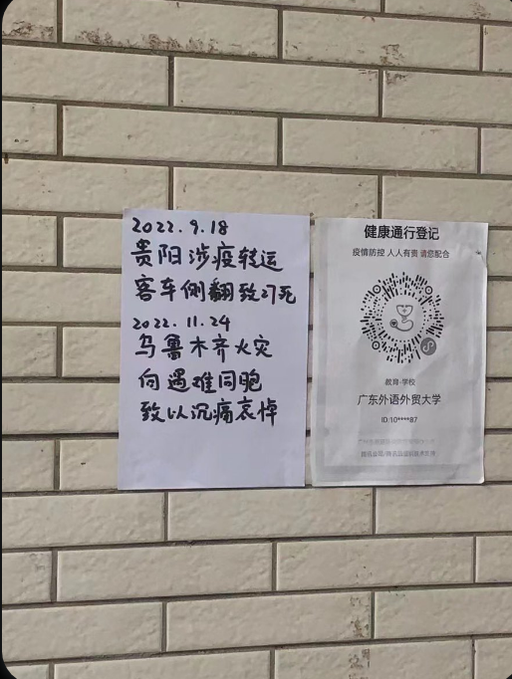 2022.9.18
贵阳涉疫转运
客车侧翻致27死
2022.11.24
乌鲁木齐火灾
向遇难同胞
致以沉痛哀悼
健康通行登记
疫情防控 人人有责 请您配合
教育·学校
广东外语外贸大学
ID:10****87